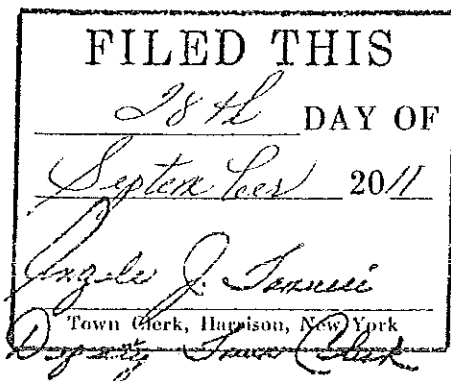 FILED THIS
28th DAY OF
September 2011
J.
Town Clerk, Harrison, New York
Deputy Town Clerk